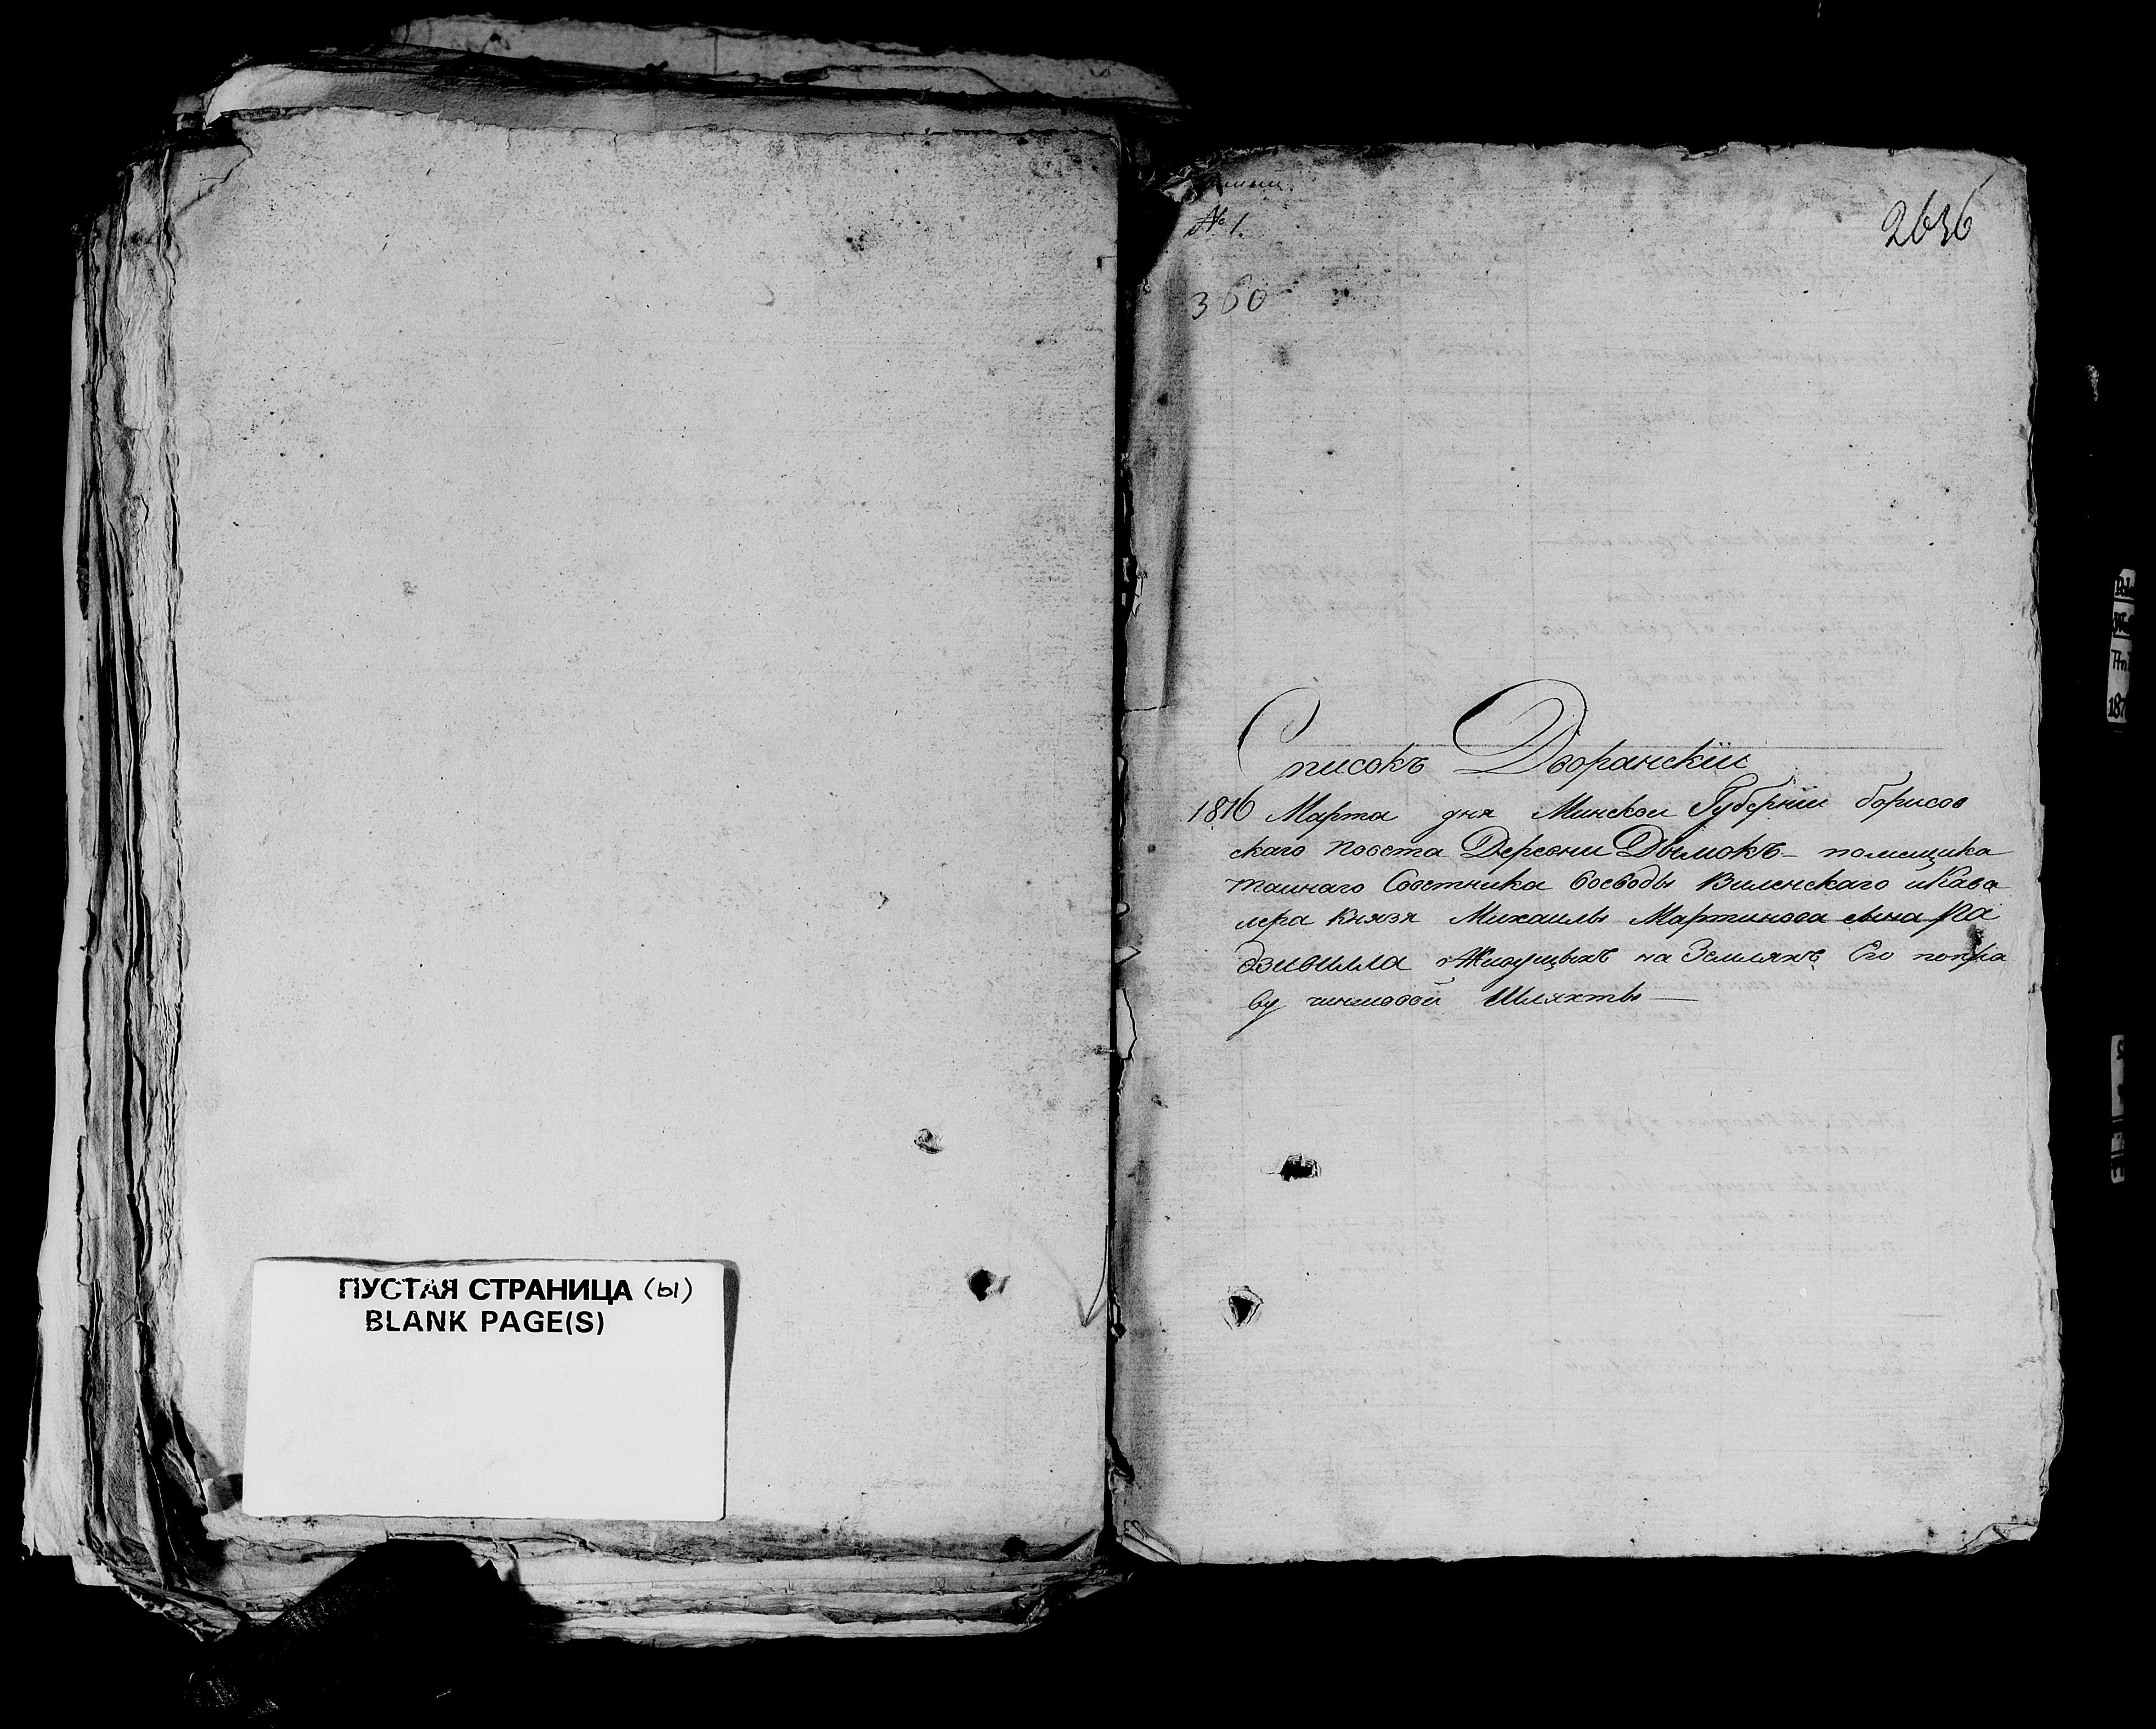 ПУСТАЯ СТРАНИЦА (ы)
BLANK PAGE(S)
№ 1.
2636
360
Списокъ Дворанскіи
1816 Марта дня Минскои Губерніи борисов
скаго повета Деревни Дымокъ — помещика
таинаго Советника воеводы Виленскаго иКава
лера Князя Михаилы Мартинова сына Ра
дзивилла Живущыхъ на Земляхъ Его попра
ву чиншовой Шляхты —